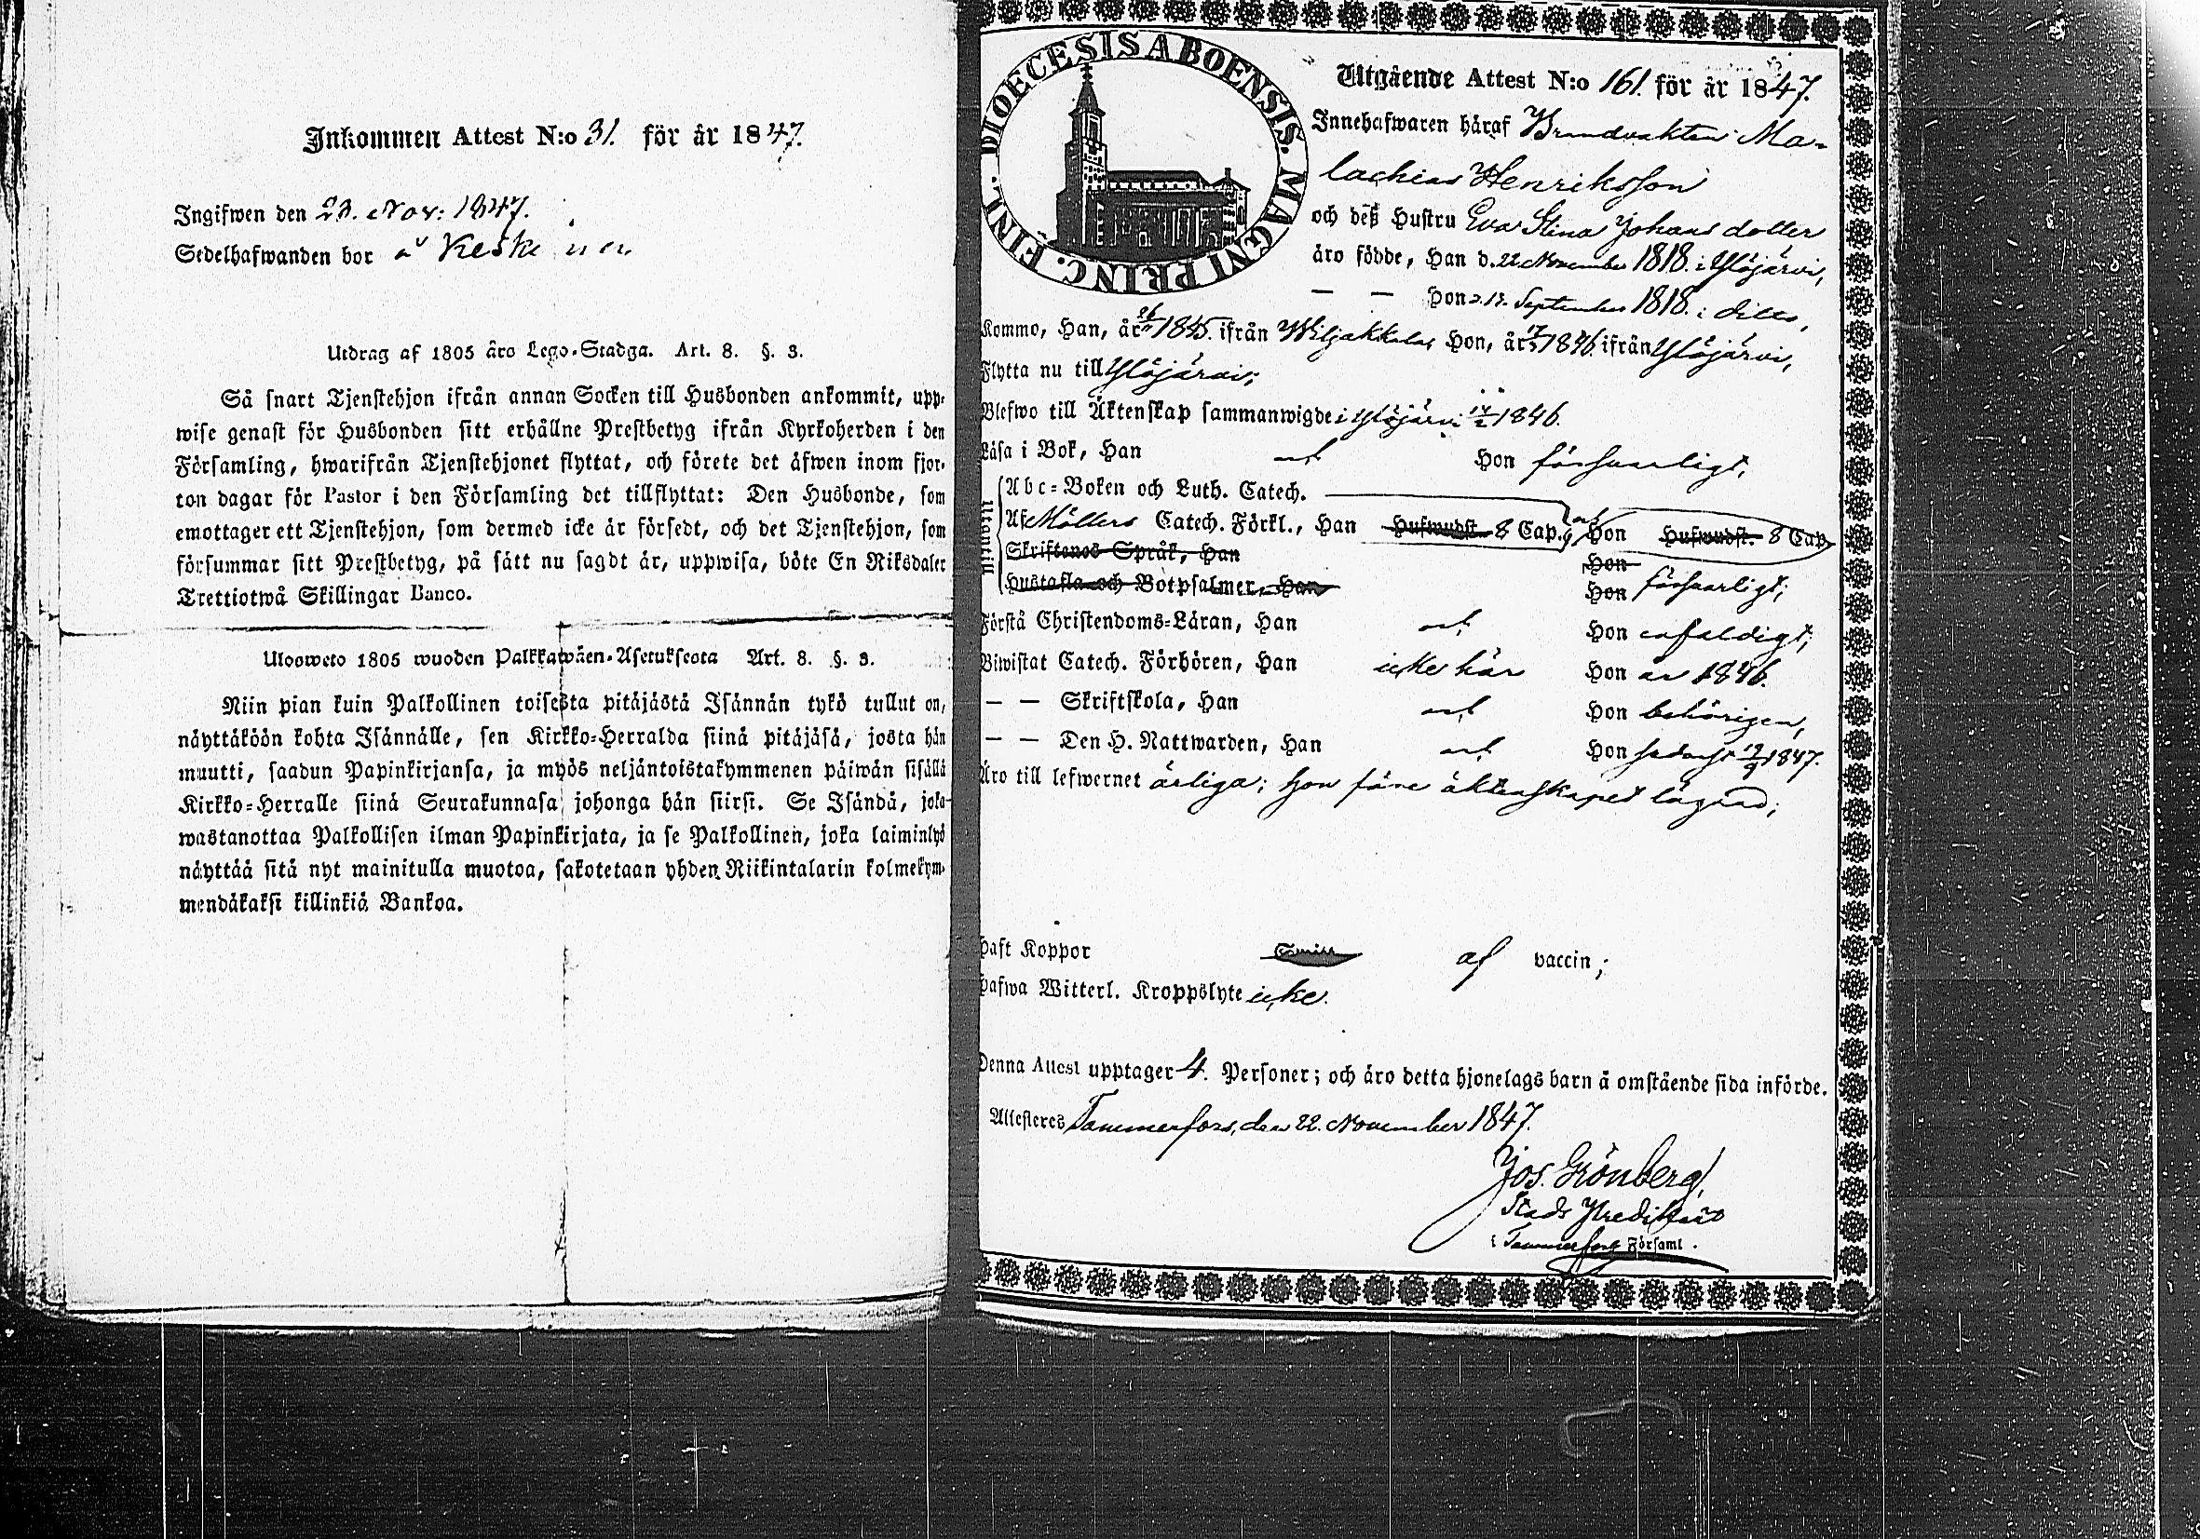 Inkommen Attest N:o 31. för år 1847.
Ingifwen den 23. Nov: 1847.
Sedelhafwanden bor å Keskinen
Utdrag af 1805 års Lego-Stadga. Art. 8. §. 3.
Så snart Tjenstehjon ifrån annan Socken till Husbonden ankommit, upp-
wise genast för Husbonden sitt erhållne Prestbetyg ifrån Kyrkoherden i den
Församling, hwarifrån Tjenstehjonet flyttat, och förete det äfwen inom fjor-
ton dagar för Pastor i den Församling det tillflyttat: Den Husbonde, som
emottager ett Tjenstehjon, som dermed icke är försedt, och det Tjenstehjon, som
försummar sitt Prestbetyg, på sätt nu sagdt är, uppwisa, böte En Riksdaler
Trettiotwå Skillingar Banco.
Ulosweto 1805 wuoden Palkkawäen-Asetuksesta Art. 8. §. 3.
Niin pian kuin Palkollinen toisesta pitäjästä Isännän tykö tullut on,
näyttäköön kohta Isännälle, sen Kirkko-Herralda siinä pitäjäsä, josta hän
muutti, saadun Papinkirjansa, ja myös neljäntoistakymmenen päiwän sisällä
Kirkko-Herralle siinä Seurakunnasa johonga hän siirsi. Se Isändä, joka
wastanottaa Palkollisen ilman Papinkirjata, ja se Palkollinen, joka laiminlyö
näyttää sitä nyt mainitulla muotoa, sakotetaan yhden Riikintalarin kolmekym-
mendäkaksi killinkiä Bankoa.
DIOECESIS ABOENSIS. MAGNI PRINC. FINL.
Utgående Attest N:o 161. för år 1847.
Innehafwaren häraf Brandvakten Ma-
lachias Henriksson
och deß Hustru Eva Stina Johans dotter
äro födde, Han d. 22 November 1818. i Ylöjärvi,
— — Hon d. 13. September 1818. i dito,
Kommo, Han, år 1845. ifrån Wiljakkala, Hon, år 1846. ifrån Ylöjärvi,
Flytta nu till Ylöjärvi;
Blefwo till Äktenskap sammanwigde i Ylöjärvi 1846.
Läsa i Bok, Han och Hon försvarligt,
Utantill
Abc-Boken och Luth. Catech.
Af Möllers Catech. Förkl., Han Hufwudst. 8 Cap. och Hon Hufwudst. 8 Cap.
Skriftenes Språk, Han Hon
Hustafla och Botpsalmer, Han Hon försvarligt;
Förstå Christendoms-Läran, Han och Hon enfaldigt;
Biwistat Catech. Förhören, Han icke här Hon år 1846.
— — Skriftskola, Han och Hon behörigen,
— — Den H. Nattwarden, Han och Hon sedast 12/9 1847.
Äro till lefwernet ärliga; hon före äktenskapet lägrad;
Haft Koppor af vaccin;
Hafwa Witterl. Kroppslyte icke.
Denna Attest upptager 4. Personer; och äro detta hjonelags barn å omstående sida införde.
Attesteres Tammerfors, den 22. November 1847.
Jos. Grönberg,
Stads Predikant
i Tammerfors Församl.